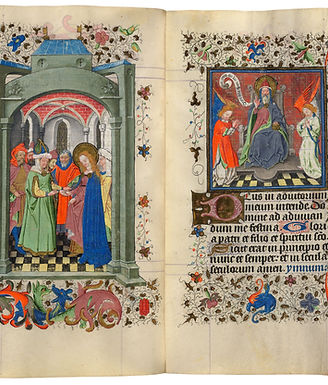 Deus in adiutorium
meum intende. Do
mine ad adiuuan
dum me festina Glo
ria patri et filio et spiritui
Sicut erat in principio et
nunc et semper: et in secula
seculorum amen.